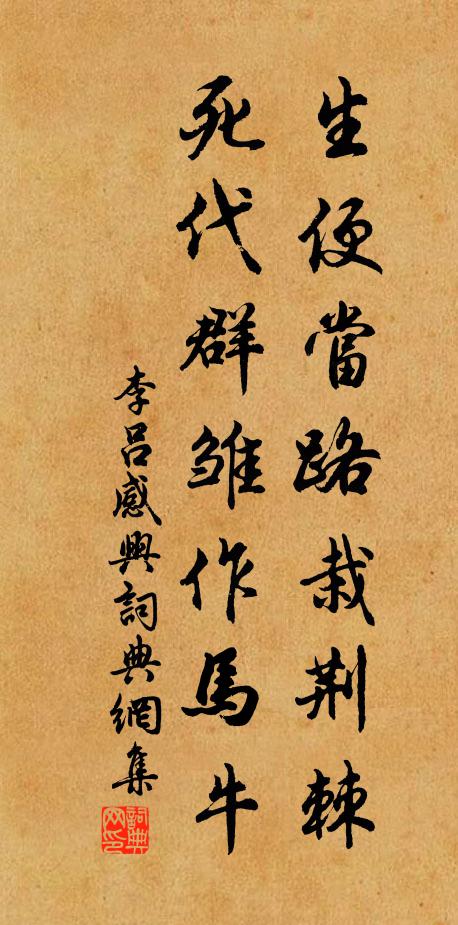 生便當路栽荆棘
死代群雏作馬牛
李吕感興詞典網集
詞典
网印